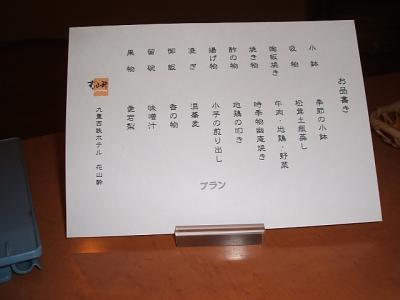 お品書き
小鉢 季節の小鉢
吸物 松茸土瓶蒸し
陶板焼き 牛肉・地鶏・野菜
焼き物 時季物幽庵焼き
酢の物 地鶏の叩き
揚げ物 小芋の煎り出し
凌ぎ 温蕎麦
御飯 香の物
留碗 味噌汁
果物 愛宕梨
九重西鉄ホテル 花山酔
プラン